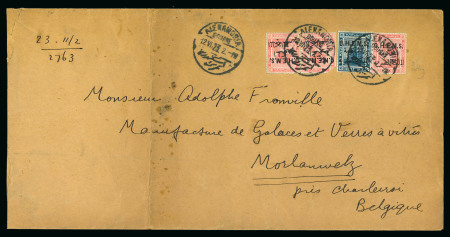 23. 11/2
2763
ALEXANDRIA
O.H.E.M.S.
O.H.E.M.S.
O.H.E.M.S.
Monsieur Adolphe Fromville
Manufacture de Galaces et Verres à vitres
Morlanwelz
près Charleroi
Belgique